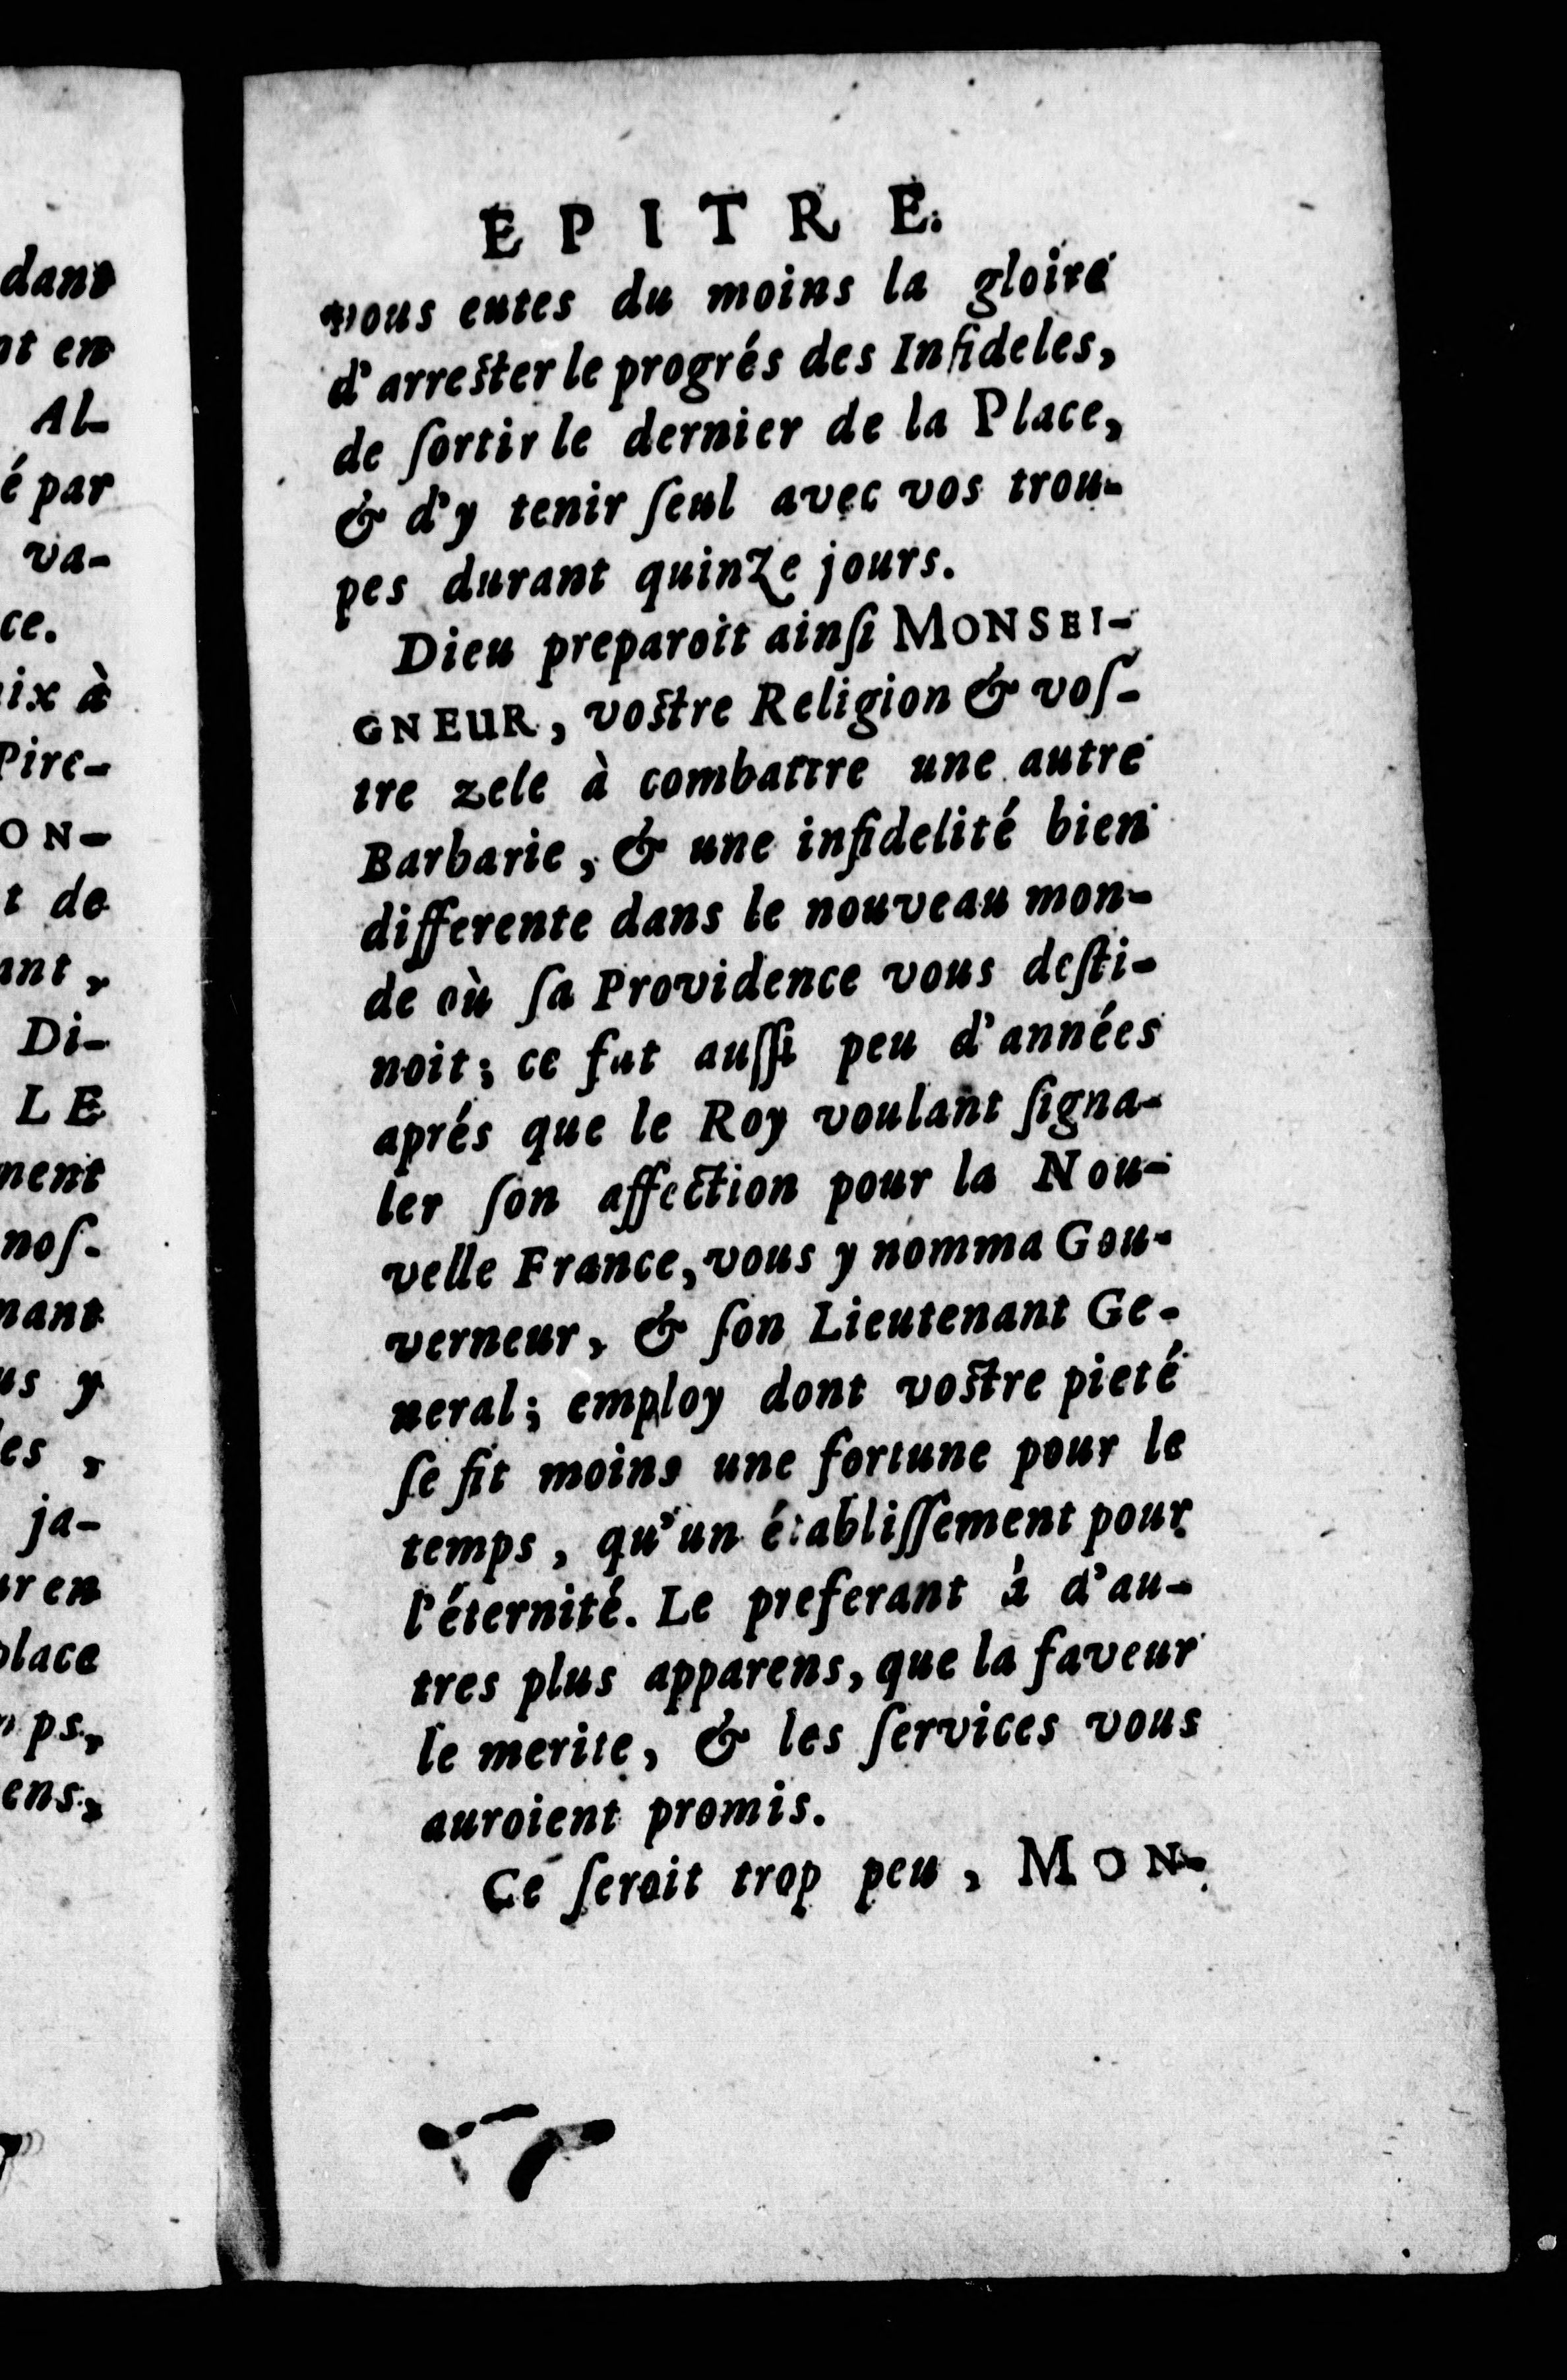 EPITRE.
vous eutes du moins la gloire
d'arrester le progrés des Infideles,
de ſortir le dernier de la Place,
& d'y tenir ſeul avec vos trou-
pes durant quinze jours.
Dieu preparoit ainſi MONSEI-
GNEUR, vostre Religion & voſ-
tre zele à combattre une autre
Barbarie, & une infidelité bien
differente dans le nouveau mon-
de où ſa Providence vous deſti-
noit; ce fut auſſi peu d'années
aprés que le Roy voulant ſigna-
ler ſon affection pour la Nou-
velle France, vous y nomma Gou-
verneur, & ſon Lieutenant Ge-
neral; employ dont vostre pieté
ſe fit moins une fortune pour le
temps, qu'un établiſſement pour
l'éternité. Le preferant à d'au-
tres plus apparens, que la faveur
le merite, & les ſervices vous
auroient promis.
Ce ſeroit trop peu, MON-
dans
nt en
Al-
é par
va-
ce.
ix à
Pire-
ON-
t de
ant,
Di-
LE
ment
noſ-
nant
us y
es,
ja-
ur en
place
ps,
ens,